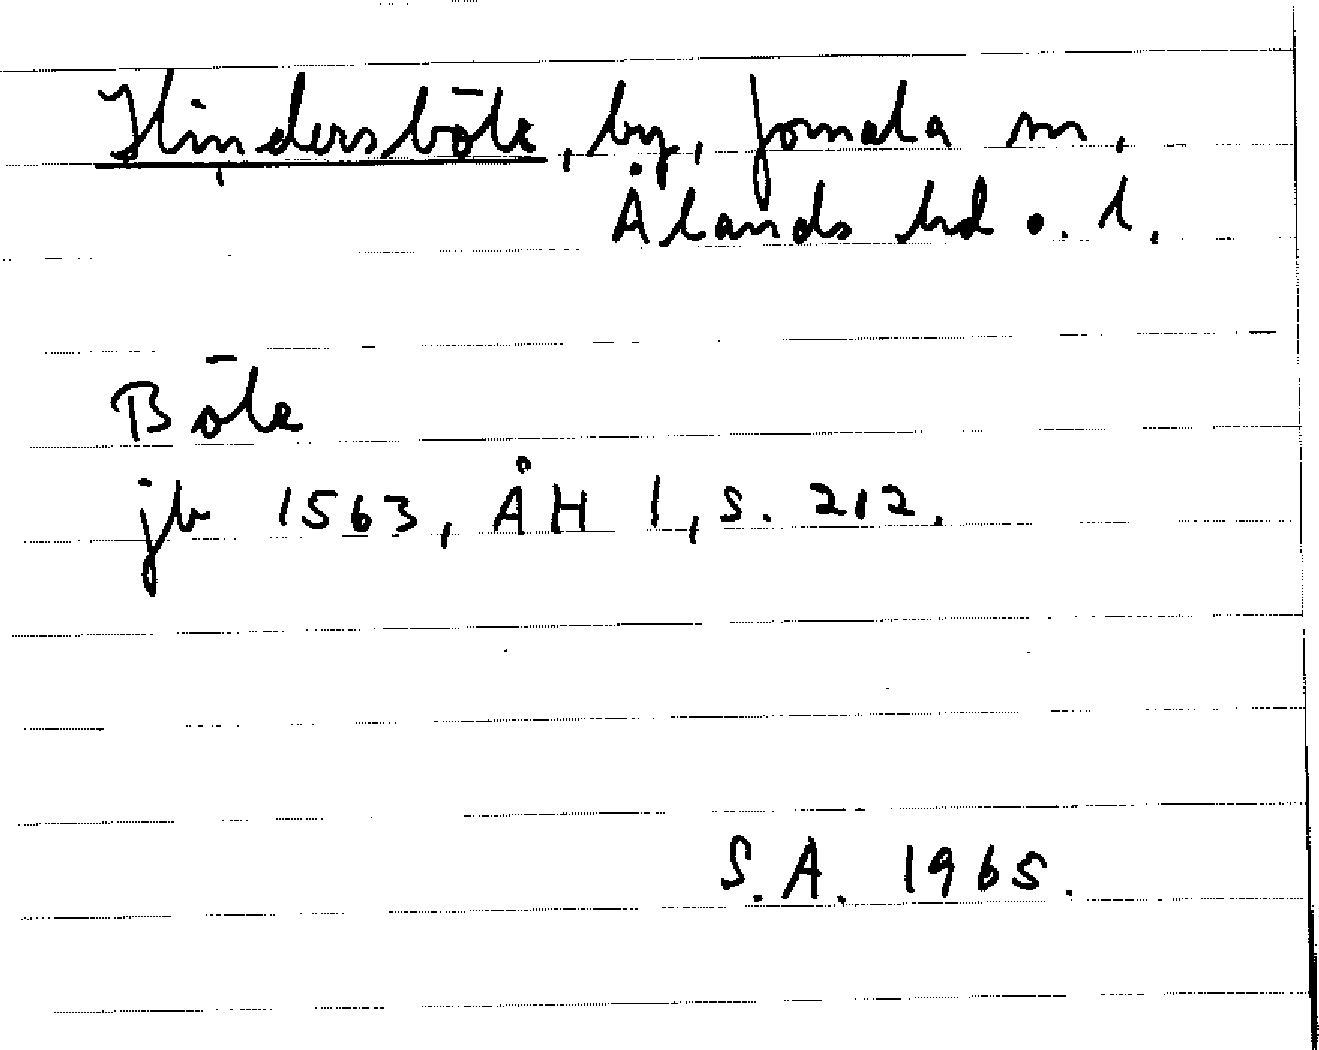 Hindersböle, by, Jomala sn,
Ålands hd o. l.
Böle
jb 1563, ÅH I, s. 212.
S.A. 1965.